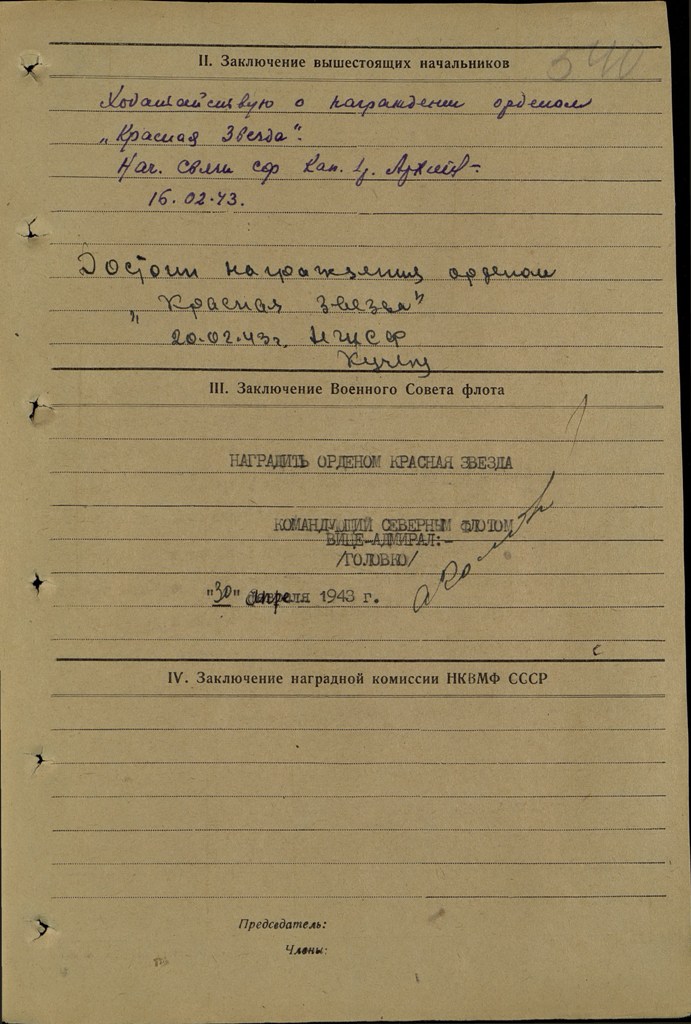 540
II. Заключение вышестоящих начальников
Ходатайствую о награждении орденом
„Красная Звезда".
Нач. связи СФ Кап.
16.02.43.
Достоин награждения орденом
„Красная Звезда"
20.02.43г. НШСФ
III. Заключение Военного Совета флота
НАГРАДИТЬ ОРДЕНОМ КРАСНАЯ ЗВЕЗДА
КОМАНДУЮЩИЙ СЕВЕРНЫМ ФЛОТОМ
ВИЦЕ-АДМИРАЛ:-
/ГОЛОВКО/
"30" апреля 1943 г.
IV. Заключение наградной комиссии НКВМФ СССР
Председатель:
Члены: